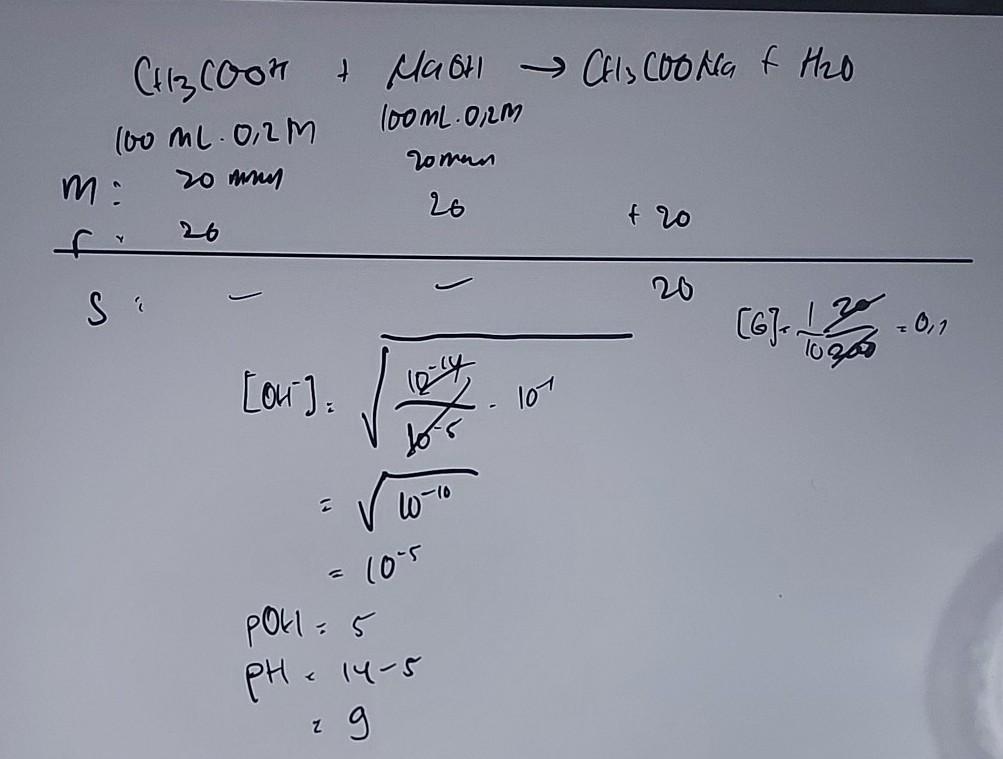 CH3COOH + NaOH → CH3COONa + H2O
100 mL . 0,2 M 100 mL . 0,2 M
m : 20 mmol 20 mmol
r : 20 20 + 20
s : - - 20
[G] = 20/200 1/10 = 0,1
[OH-] = √10-14/10-5 . 10-1
= √10-10
= 10-5
pOH = 5
pH = 14-5
= 9